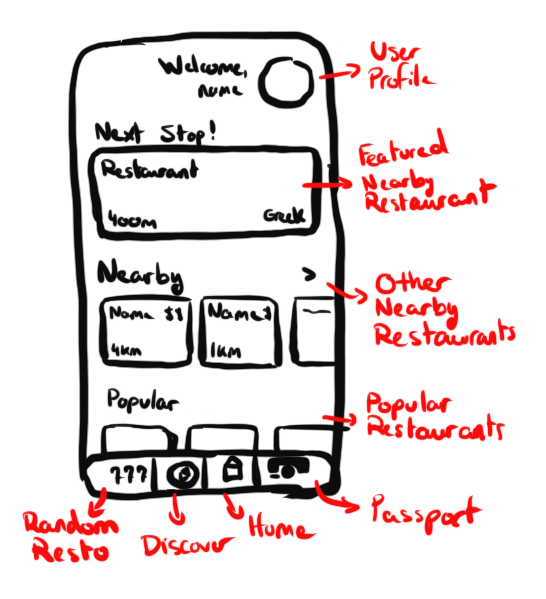 Welcome,
name
User
Profile
Next Stop!
Restaurant
400m
Greek
Featured
Nearby
Restaurant
Nearby
>
Name $$
4km
Name $
1km
Other
Nearby
Restaurants
Popular
Popular
Restaurants
???
Random
Resto
Discover
Home
Passport